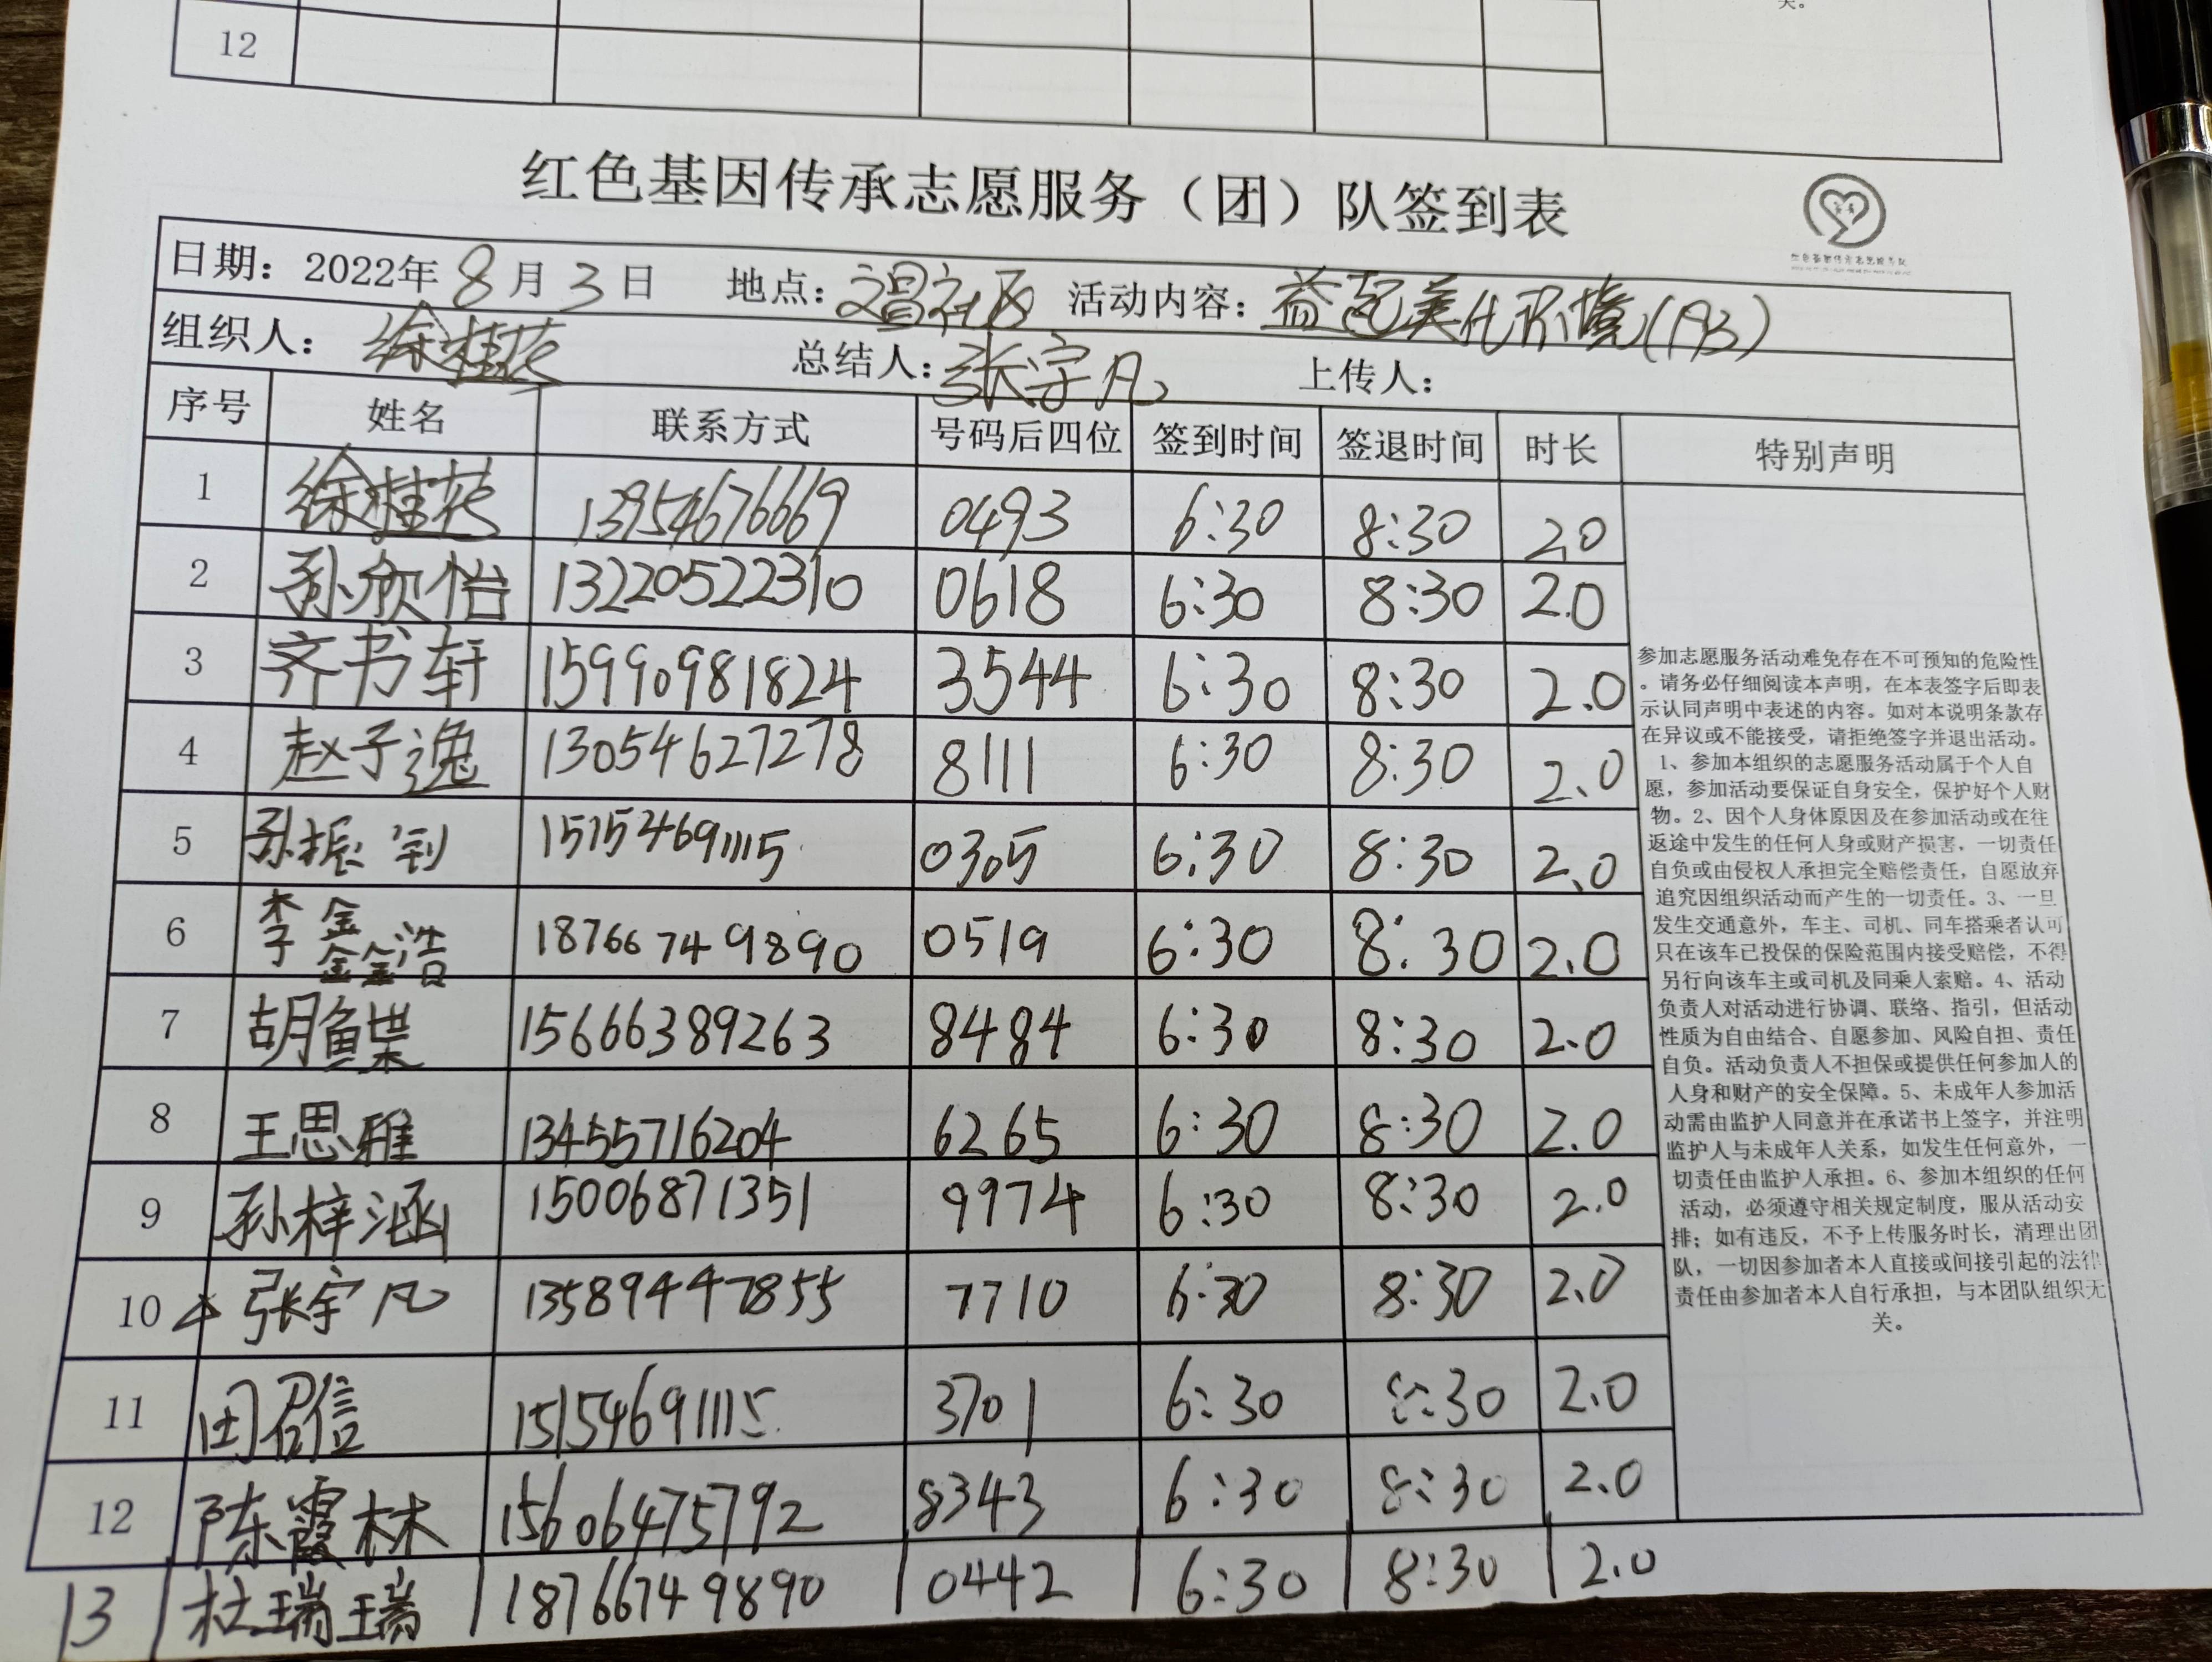 关。
12
红色基因传承志愿服务（团）队签到表
日期：2022年8月3日 地点：文昌社区 活动内容：益起美化环境(A3)
组织人：徐桂花 总结人：张宇凡 上传人：
序号 姓名 联系方式 号码后四位 签到时间 签退时间 时长 特别声明
1 徐桂花 13954676669 0493 6:30 8:30 2.0
2 孙欣怡 13220522310 0618 6:30 8:30 2.0
3 齐书轩 15990981824 3544 6:30 8:30 2.0
4 赵子逸 13054627278 8111 6:30 8:30 2.0
5 孙振 15154691115 0305 6:30 8:30 2.0
6 李鑫浩 18766749890 0519 6:30 8:30 2.0
7 胡鱼葉 15666389263 8484 6:30 8:30 2.0
8 王思雅 13455716204 6265 6:30 8:30 2.0
9 孙梓涵 15006871351 9974 6:30 8:30 2.0
10 张宇凡 13589447855 7710 6:30 8:30 2.0
11 田召信 15154691115 3701 6:30 8:30 2.0
12 陈霞林 15606475792 8343 6:30 8:30 2.0
13 杜瑞瑞 18766749890 0442 6:30 8:30 2.0
参加志愿服务活动难免存在不可预知的危险性
。请务必仔细阅读本声明，在本表签字后即表
示认同声明中表述的内容。如对本说明条款存
在异议或不能接受，请拒绝签字并退出活动。
1、参加本组织的志愿服务活动属于个人自
愿，参加活动要保证自身安全，保护好个人财
物。2、因个人身体原因及在参加活动或在往
返途中发生的任何人身或财产损害，一切责任
自负或由侵权人承担完全赔偿责任，自愿放弃
追究因组织活动而产生的一切责任。3、一旦
发生交通意外，车主、司机、同车搭乘者认可
只在该车已投保的保险范围内接受赔偿，不得
另行向该车主或司机及同乘人索赔。4、活动
负责人对活动进行协调、联络、指引，但活动
性质为自由结合、自愿参加、风险自担、责任
自负。活动负责人不担保或提供任何参加人的
人身和财产的安全保障。5、未成年人参加活
动需由监护人同意并在承诺书上签字，并注明
监护人与未成年人关系，如发生任何意外，一
切责任由监护人承担。6、参加本组织的任何
活动，必须遵守相关规定制度，服从活动安
排；如有违反，不予上传服务时长，清理出团
队，一切因参加者本人直接或间接引起的法律
责任由参加者本人自行承担，与本团队组织无
关。